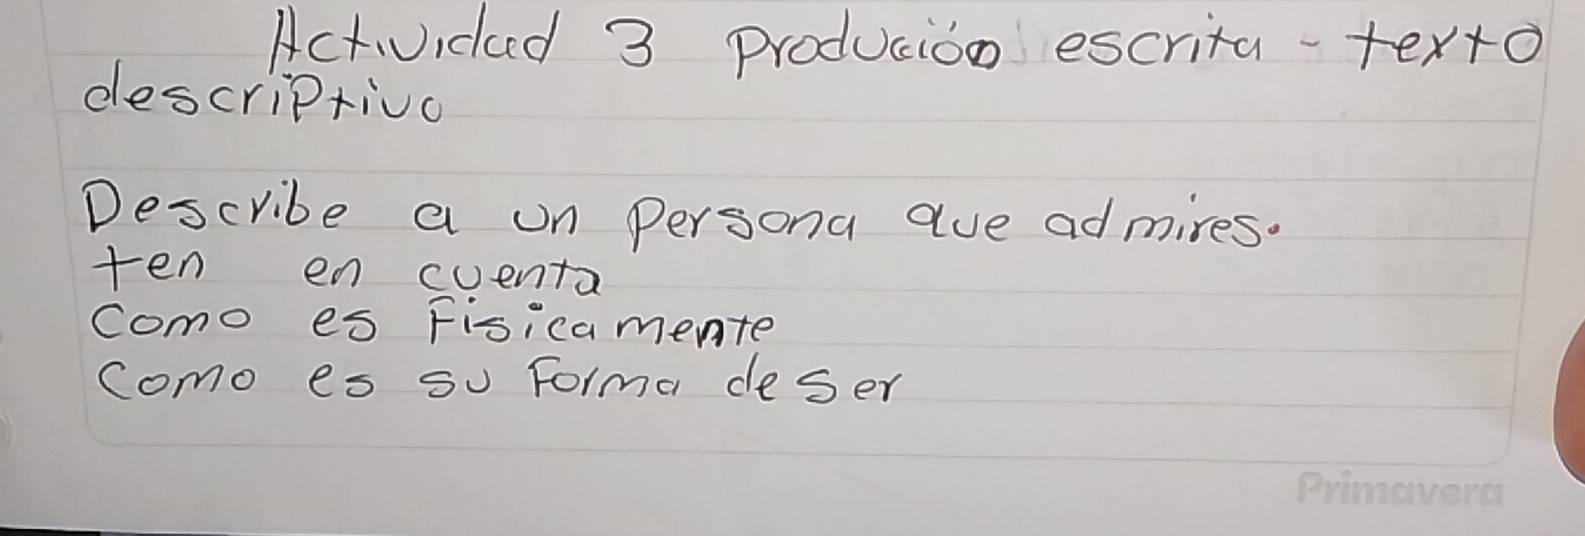 Actividad 3 Produción escrita - texto
descriptivo
Describe a un persona que admires.
ten en cuenta
Como es Fisicamente
Como es su Forma de ser
Primavera